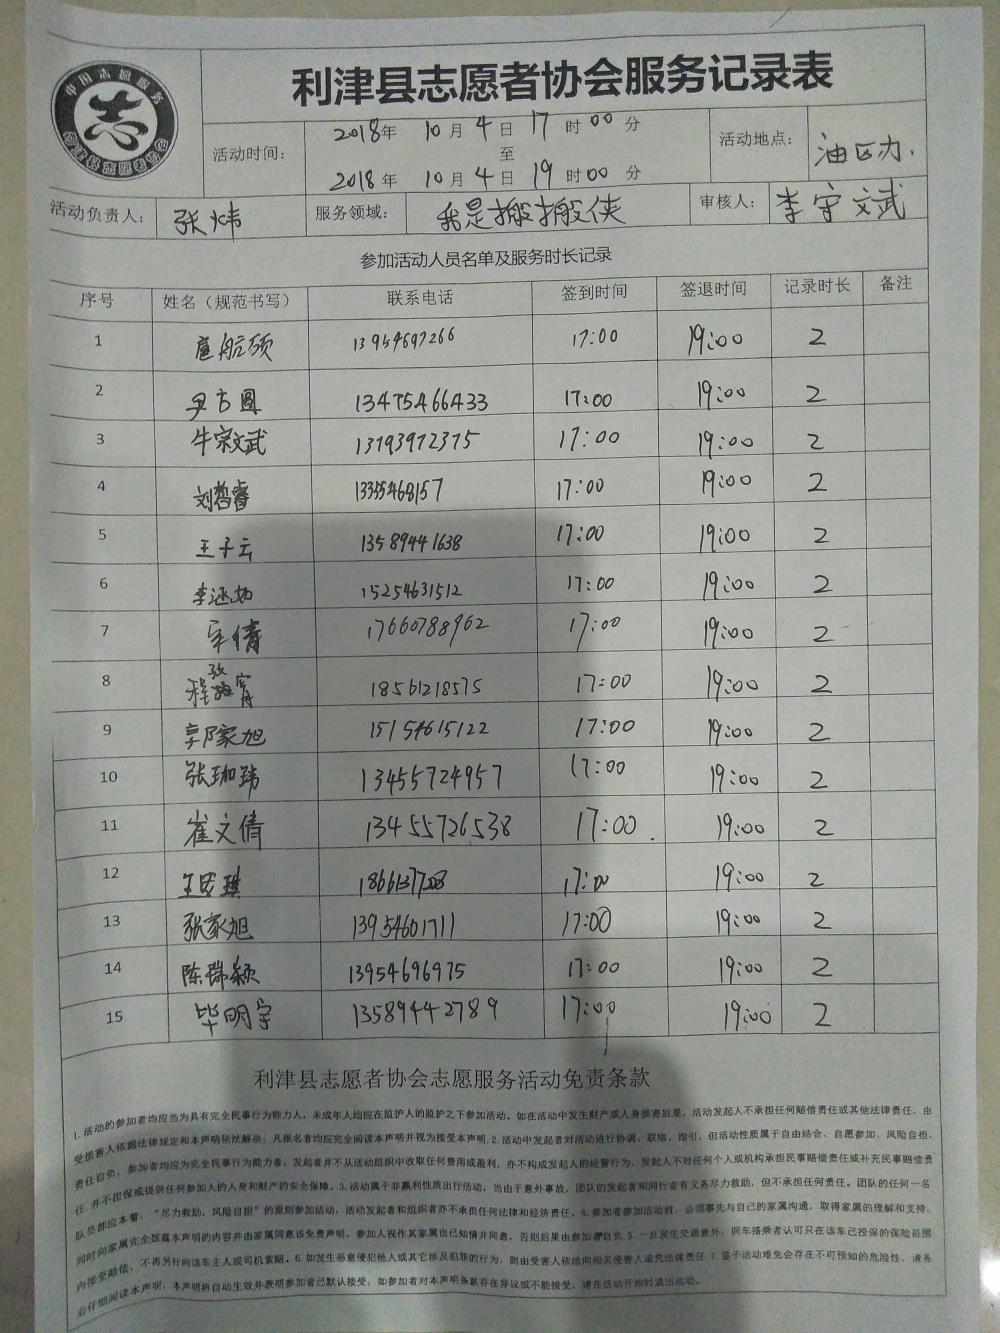 中国志愿服务
志
利津县志愿者协会
利津县志愿者协会服务记录表
活动时间: 2018年 10月4日 17时00分
至
2018年 10月4日 19时00分
活动地点: 油区办.
活动负责人: 张炜 服务领域: 我是搬搬侠 审核人: 李宇文武
参加活动人员名单及服务时长记录
序号 姓名（规范书写） 联系电话 签到时间 签退时间 记录时长 备注
1 扈航硕 13954697266 17:00 19:00 2
2 尹方圆 13475466433 17:00 19:00 2
3 牛宗文武 13793972375 17:00 19:00 2
4 刘哲睿 13335468157 17:00 19:00 2
5 王子云 13589441638 17:00 19:00 2
6 李涵如 15254631512 17:00 19:00 2
7 宋倩 17660788962 17:00 19:00 2
8 程孜宵 18561218575 17:00 19:00 2
9 郭家旭 15154615122 17:00 19:00 2
10 张珈玮 13455724957 17:00 19:00 2
11 崔文倩 13455726538 17:00 19:00 2
12 17:00 19:00 2
13 张家旭 13954601711 17:00 19:00 2
14 陈瑞颖 13954696975 17:00 19:00 2
15 毕明宇 13589442789 17:00 19:00 2
利津县志愿者协会志愿服务活动免责条款
1.活动的参加者均应当为具有完全民事行为能力人，未成年人均应在监护人的监护之下参加活动。如在活动中发生财产或人身损害后果，活动发起人不承担任何赔偿责任或其他法律责任，由
受损害人依据法律规定和本声明依法解决；凡报名者均应完全阅读本声明并视为接受本声明。2.活动中发起者对活动进行协调、联络、指引，但活动性质属于自由结合、自愿参加、风险自担、
责任自负，参加者均应为完全民事行为能力者，发起者并不从活动组织中收取任何费用或盈利，亦不构成发起人的经营行为，发起人不对任何个人或机构承担民事赔偿责任或补充民事赔偿责
任，并不担保或提供任何参加人的人身和财产的安全保障。3.活动属于非赢利性质出行活动，当由于意外事故，团队的发起者和同行者有义务尽力救助，但不承担任何责任。团队的任何一名
队员都应本着："尽力救助、风险自担"的原则参加活动，活动发起者和组织者亦不承担任何法律和经济责任。4.参加者参加活动前，必须事先与自己的家属沟通，取得家属的理解和支持，
同时向家属完全披露本声明的内容并由家属同意该免责声明。参加人视作其家属也已知情并同意，否则后果由参加者自负。5.一旦发生交通意外，同车搭乘者认可只在该车已投保的保险范围
内接受赔偿，不再另行向该车主人或司机索赔。6.如发生恶意侵犯他人或其它涉及犯罪的行为，则由受害人依法向相关侵害人追究法律责任。7.鉴于活动难免会存在不可预知的危险性，请务
必仔细阅读本声明，本声明将自动生效并表明参加者已默认接受，如参加者对本声明条款存在异议或不能接受，请在活动开始时退出活动。